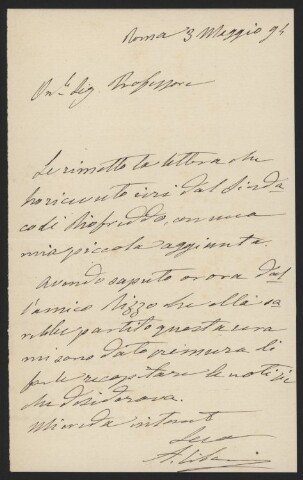 Roma 3 Maggio 94
On.le Sig. Professore
Le rimetto la lettera che
ho ricevuto ieri dal Sinda
co di Riofreddo, con una
mia piccola aggiunta.
Avendo saputo or ora dal
l'amico Rizzo che ella sa
rebbe partito questa sera
mi sono dato premura di
farle recapitare le notizie
che desiderava.
Mi creda intanto
Suo